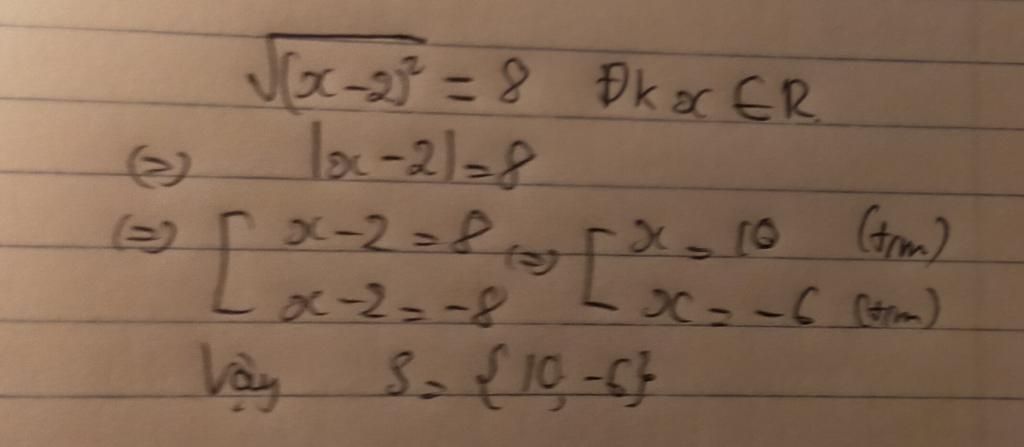 √(x-2)² = 8 Đk x ∈ R
(=) |x-2| = 8
(=) [ x-2 = 8 (=) [ x = 10 (t/m)
x-2 = -8 x = -6 (t/m)
Vậy S = {10, -6}